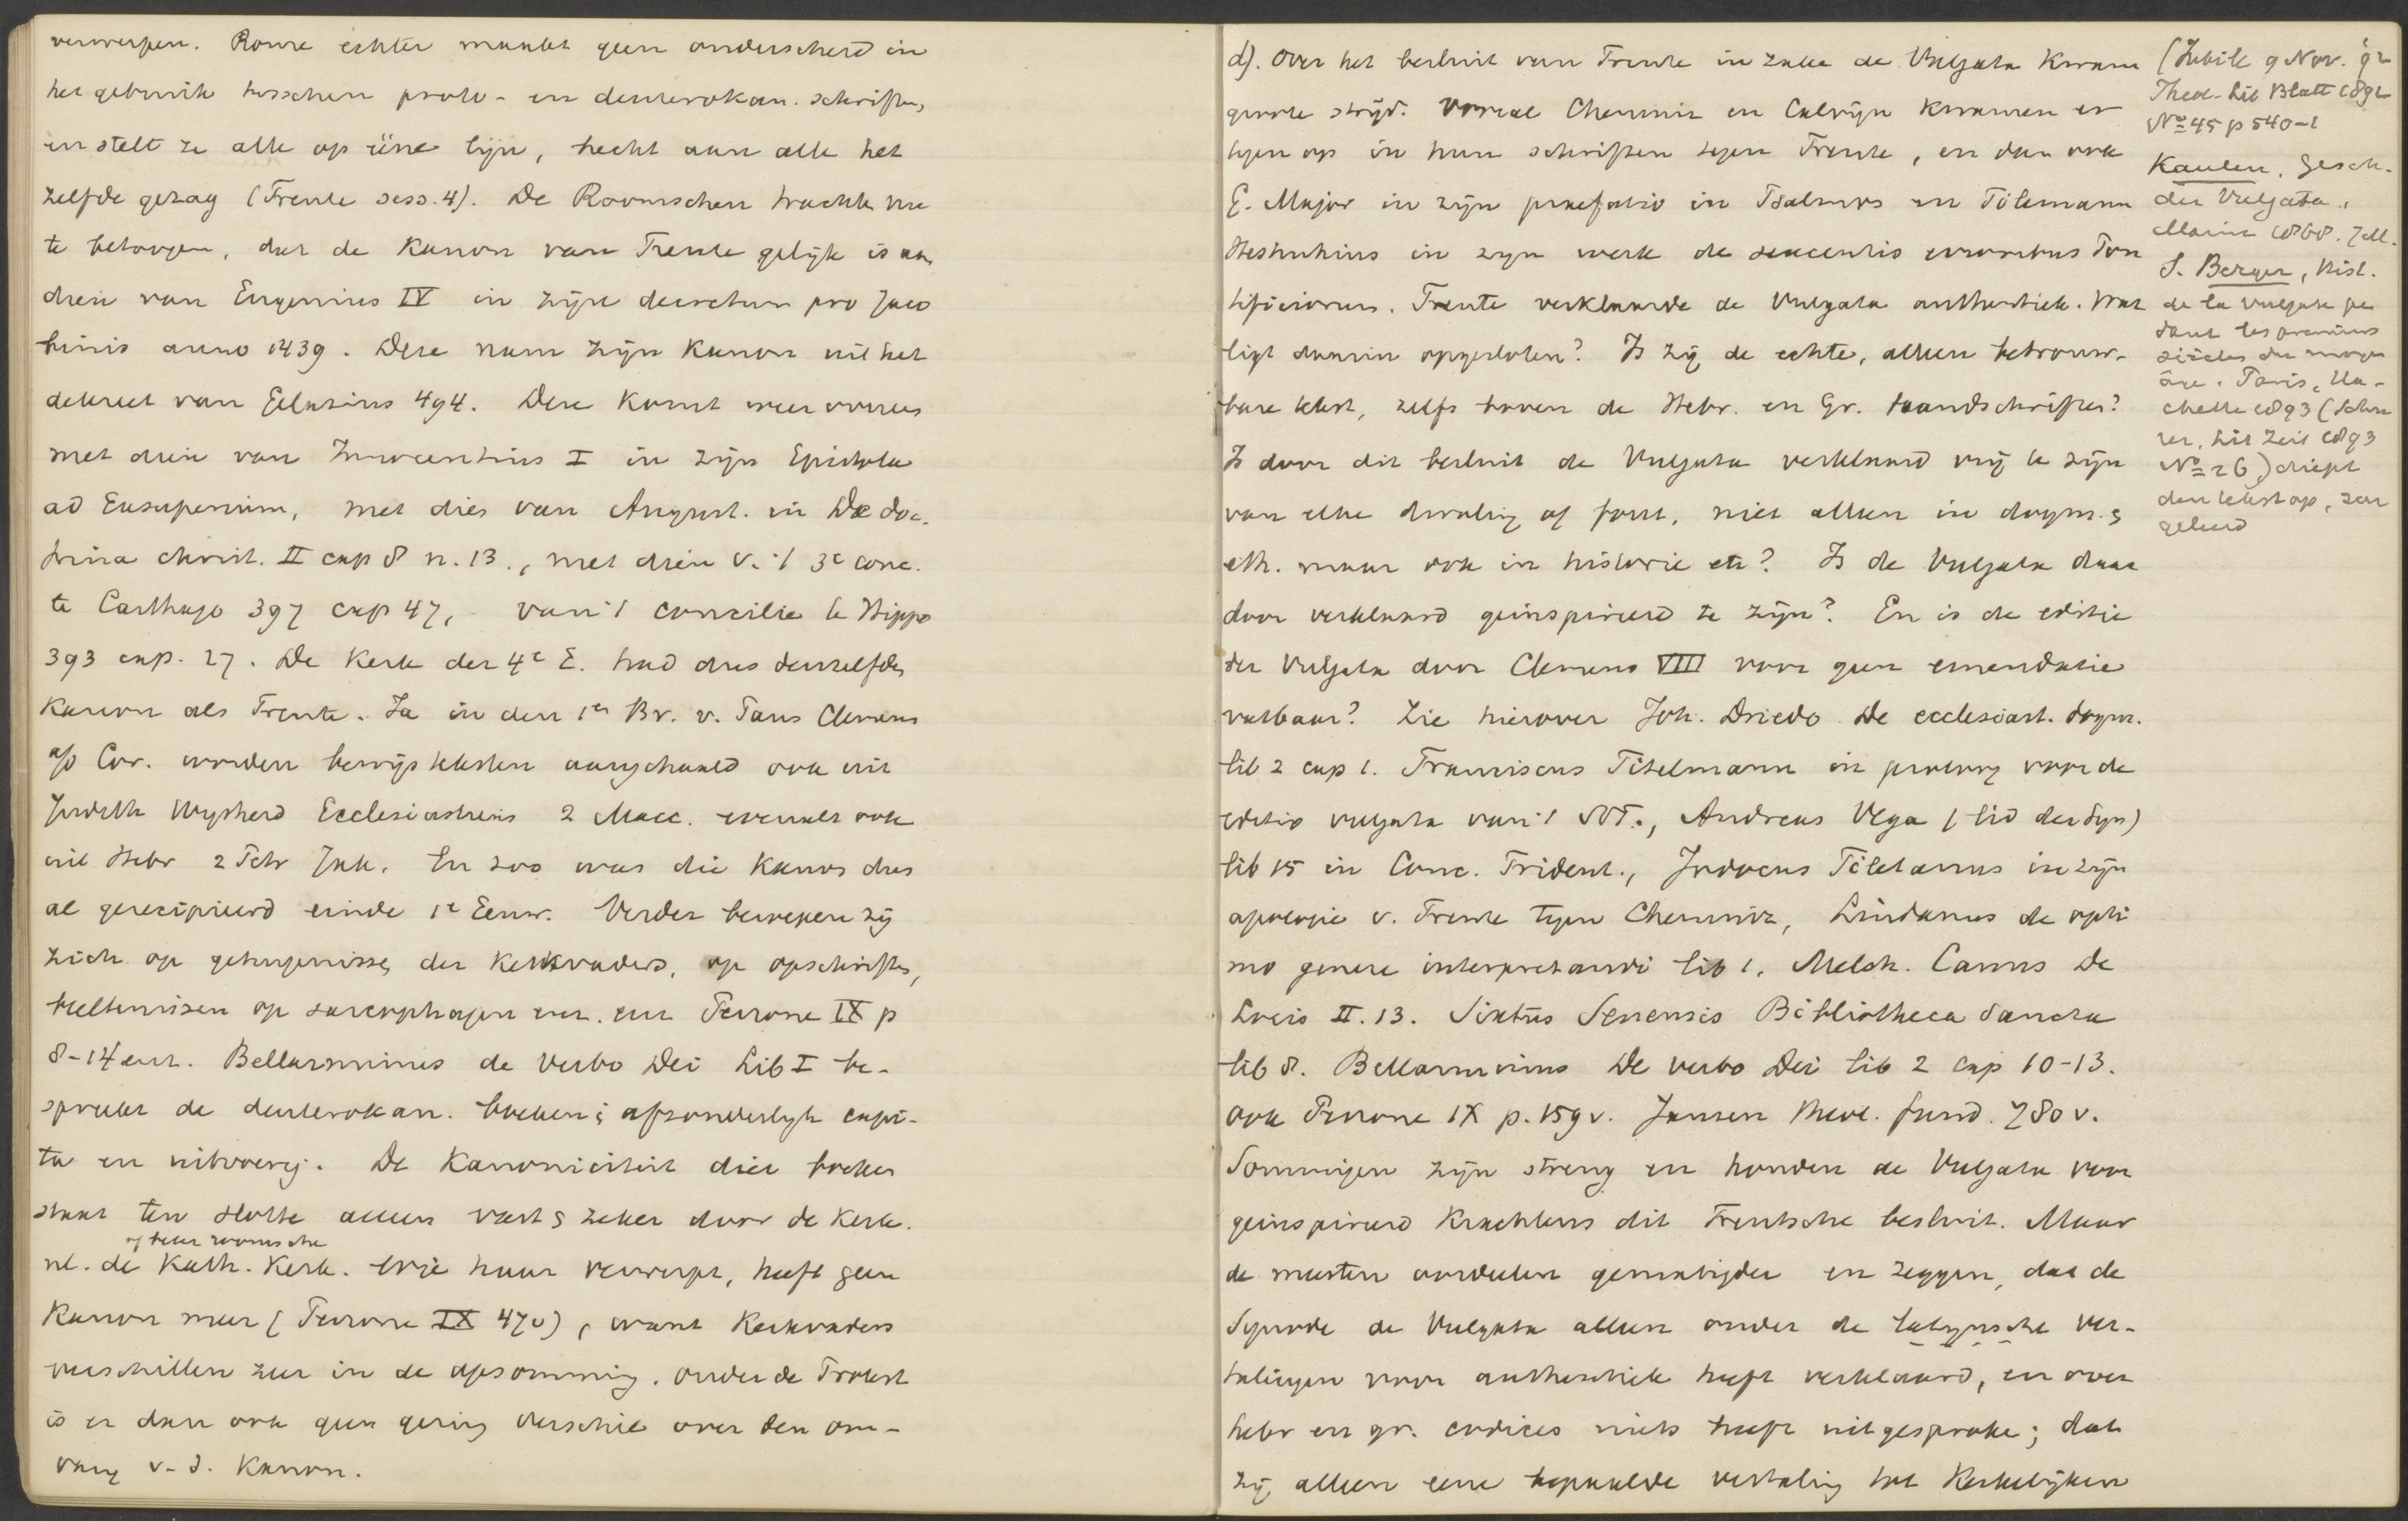 verwerpen. Rome echter maakt geen onderscheid in
het gebruik tusschen proto- en deuterokan. schriften,
en stelt ze alle op ééne lijn, hecht aan alle het
zelfde gezag (Trente sess. 4). De Roomschen trachten nu
te betoogen, dat de Kanon van Trente gelijk is aan
dien van Eugenius IV in zijn decretum pro Jaco
binis anno 1439. Deze nam zijn Kanon uit het
dekreet van Gelasius 494. Deze komt weer overeen
met dien van Innocentius I in zijn Epistola
ad Exsuperium, met dien van August. in De doc-
trina christ. II cap 8 n. 13., met dien v. 't 3e conc.
te Carthago 397 cap 47, van 't concilie te Hippo
393 cap. 27. De Kerk der 4e E. had dus denzelfden
Kanon als Trente. Ja in den 1en Br. v. Paus Clemens
ap Cor. worden bewijsteksten aangehaald ook uit
Judith Wijsheid Ecclesiasticus 2 Macc. evenals ook
uit Hebr 2 Petr Jak. En zoo was die Kanon dus
al gerecipieerd einde 1e Eeuw. Verder beroepen zij
zich op getuigenissen der Kerkvaders, op opschriften,
beeltenissen op sarcophagen enz. enz Perrone IX p
8-14 enz. Bellarminus de Verbo Dei Lib I be-
spreekt de deuterokan. boeken in afzonderlijke capi-
ta en uitvoerig. De Kanoniciteit dier boeken
staat ten slotte alleen vast & zeker door de Kerk.
of beter roomsche
nl. de Kath. Kerk. Wie haar verwerpt, heeft geen
Kanon meer (Perrone IX 47v), want Kerkvaders
verschillen zeer in de opsomming. Onder de Protest
is er dan ook geen gering verschil over den om-
vang v. d. Kanon.
d). Over het besluit van Trente in zake de Vulgata kwam
groote strijd. Vooral Chemnix en Calvijn kwamen er
tegen op in hun schriften tegen Trente, en dan ook
G. Major in zijn praefatio in Psalmos en Tilemann
Heshuhius in zijn werk de sexcentis erroribus Pon
tificiorum. Trente verklaarde de Vulgata authentiek. Wat
ligt daarin opgesloten? Is zij de echte, alleen betrouw-
bare tekst, zelfs boven de Hebr. en Gr. handschriften?
Is door dit besluit de Vulgata verklaard vrij te zijn
van elke dwaling of fout, niet alleen in dogm. &
eth. maar ook in historie etc? Is de Vulgata daar
door verklaard geinspireerd te zijn? En is de editie
der Vulgata door Clemens VIII voor geen emendatie
vatbaar? Zie hierover Joh. Driedo De ecclesiast. dogm.
lib 2 cap 1. Franciscus Titelmann in proloog voor de
editio vulgata van 't NT., Andreas Vega (lid der Syn)
lib 15 in Conc. Trident., Jodocus Tiletanus in zijn
apologie v. Trente tegen Chemniz, Lindanus de opti
mo genere interpretandi lib 1, Melch. Canus De
Locis II. 13. Sixtus Senensis Bibliotheca Sancta
lib 8. Bellarminus De verbo Dei lib 2 cap 10-13.
ook Perrone IX p. 159v. Jansen theol. fund. 780v.
Sommigen zijn streng en houden de Vulgata voor
geinspireerd krachtens dit Trentsche besluit. Maar
de meesten oordeelen gematigder en zeggen, dat de
Synode de Vulgata alleen onder de latijnsche ver-
talingen voor authentiek heeft verklaard, en over
hebr en gr. codices niets heeft uitgesproken; dat
zij alleen eene bepaalde vertaling tot Kerkelijken
(Zubilé 9 Nov. 92
Theol. Lit Blatt 1892
No 45 p 540-1
Kaulen, Gesch.
der Vulgata,
Mainz 1868. 7M.
S. Berger, Hist.
de la Vulgate pen
dant les premiers
siècles du moyen
âge. Paris, Ha-
chette 1893 (Schü
rer, Lit Zeit 1893
No 26) diept
den tekst op, zeer
geleerd